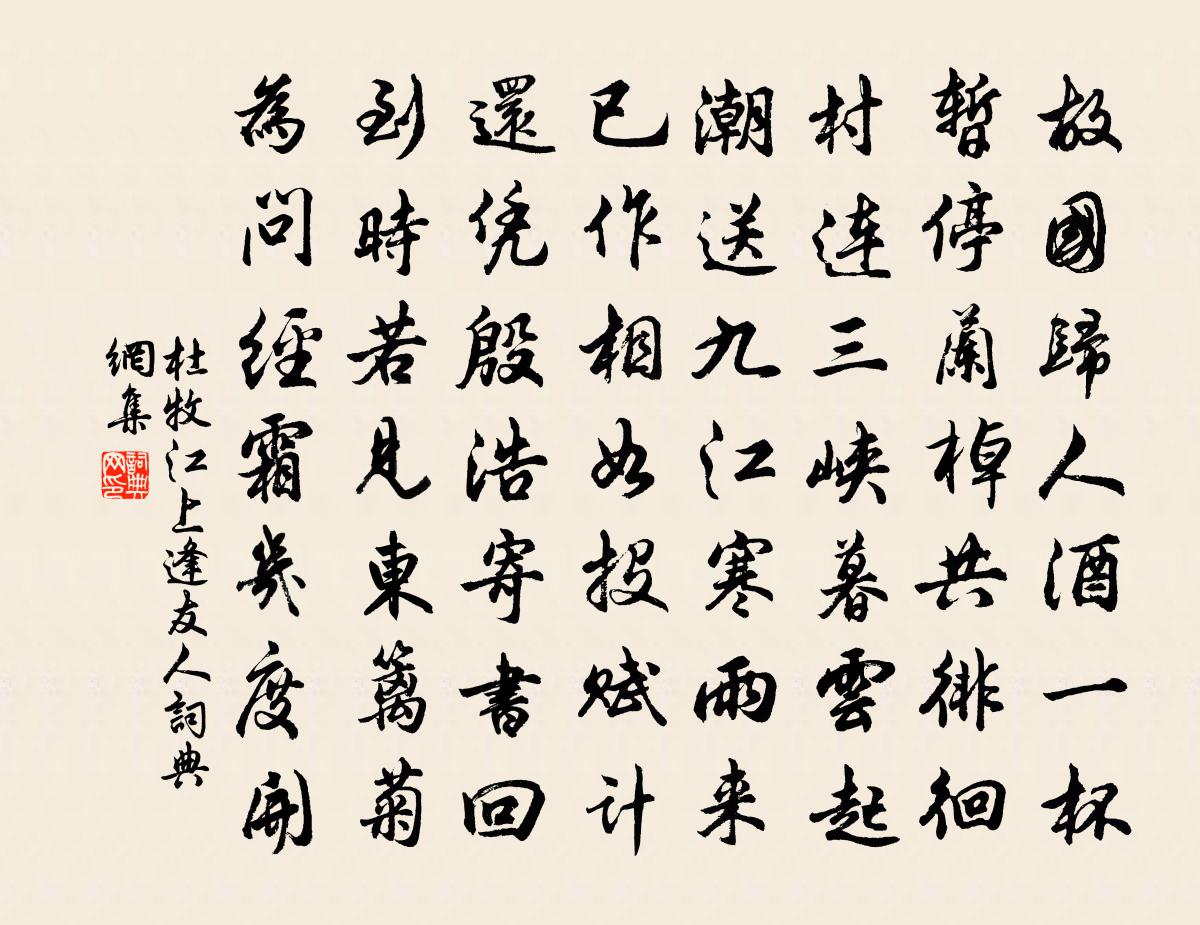 故國歸人酒一杯
暫停蘭棹共徘徊
村連三峽暮雲起
潮送九江寒雨来
已作相如投賦计
還凭殷浩寄書回
到時若見東籬菊
為問經霜幾度開
杜牧江上逢友人詞典
網集
詞典
网